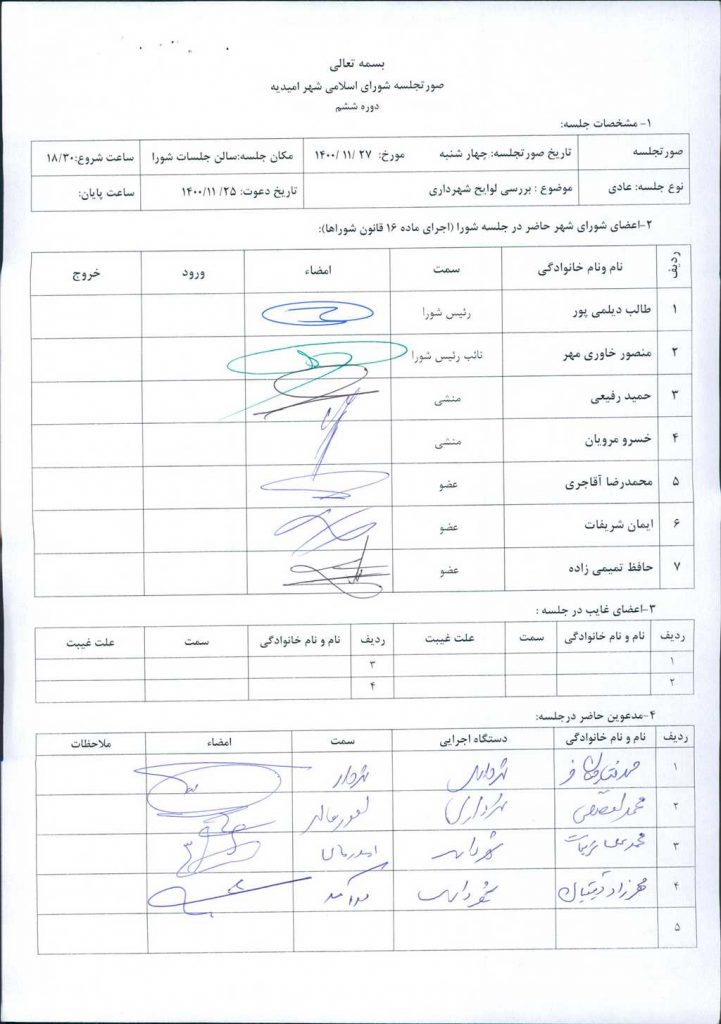 بسمه تعالی
صورتجلسه شورای اسلامی شهر امیدیه
دوره ششم
۱- مشخصات جلسه:
صورتجلسه تاریخ صورتجلسه: چهار شنبه مورخ: ۲۷ /۱۱ /۱۴۰۰ مکان جلسه:سالن جلسات شورا ساعت شروع:۱۸/۳۰
نوع جلسه: عادی موضوع : بررسی لوایح شهرداری تاریخ دعوت: ۲۵/ ۱۴۰۰/۱۱ ساعت پایان:
۲-اعضای شورای شهر حاضر در جلسه شورا (اجرای ماده ۱۶ قانون شوراها):
ردیف نام ونام خانوادگی سمت امضاء ورود خروج
۱ طالب دیلمی پور رئیس شورا
۲ منصور خاوری مهر نائب رئیس شورا
۳ حمید رفیعی منشی
۴ خسرو مرویان منشی
۵ محمدرضا آقاجری عضو
۶ ایمان شریفات عضو
۷ حافظ تمیمی زاده عضو
۳-اعضای غایب در جلسه :
ردیف نام و نام خانوادگی سمت علت غیبت ردیف نام و نام خانوادگی سمت علت غیبت
۱ ۳
۲ ۴
۴-مدعوین حاضر درجلسه:
ردیف نام و نام خانوادگی دستگاه اجرایی سمت امضاء ملاحظات
۱ شهرداری شهردار
۲ محمد شهرداری
۳ شهرداری
۴ شهرداری درآمد
۵